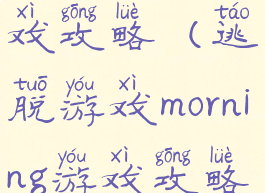 xì gōng lüè táo
戏攻略（逃
tuō yóu xì
脱游戏morni
yóu xì gōng lüè
ng游戏攻略